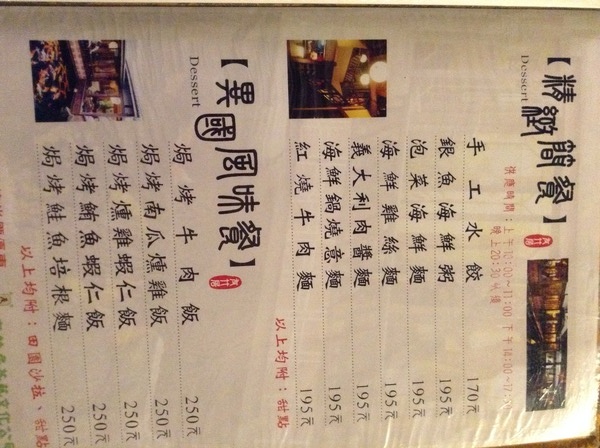 【精緻簡餐】
Dessert
供應時間：上午10:00~11:00 下午14:00~17:20
晚上20:30以後
手工水餃 170元
銀魚海鮮粥 195元
泡菜海鮮麵 195元
海鮮雞絲麵 195元
義大利肉醬麵 195元
海鮮鍋燒意麵 195元
紅燒牛肉麵 195元
以上均附：甜點
【異國風味餐】
Dessert
焗烤牛肉飯 250元
焗烤南瓜燻雞飯 250元
焗烤燻雞蝦仁飯 250元
焗烤鮪魚蝦仁飯 250元
焗烤鮭魚培根麵 250元
以上均附：田園沙拉、甜點